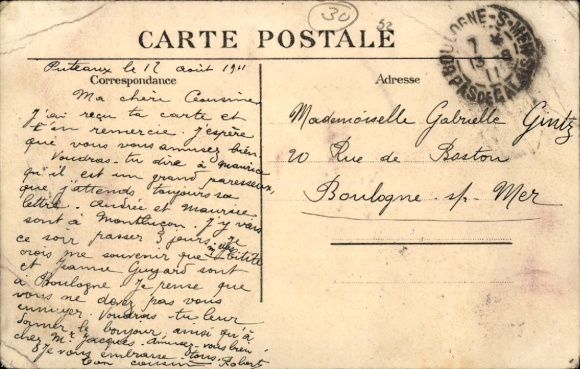 30
52
CARTE POSTALE
BOULOGNE-S-MER
PAS DE CALAIS
13 8
11
Puteaux le 12 août 1911
Correspondance
Adresse
Ma chère Cousine
J'ai reçu ta carte et
t'en remercie. J'espère
que vous vous amusez bien.
Voudras-tu dire à Maurice
qu'il est un grand paresseux,
que j'attends toujours sa
lettre. Andrée et Maurice
sont à Montluçon. J'y vais
ce soir passer 3 jours. Je
crois me souvenir que
et Jeanne Guyard sont
à Boulogne. Je pense que
vous ne devez pas vous
ennuyer. Voudras-tu leur
donner le bonjour, ainsi qu'à
chez Mr Jacques. Amusez-vous bien
Je vous embrasse tous. Robert
Ton cousin
Mademoiselle Gabrielle Gintz
20 Rue de Boston
Boulogne s/ Mer